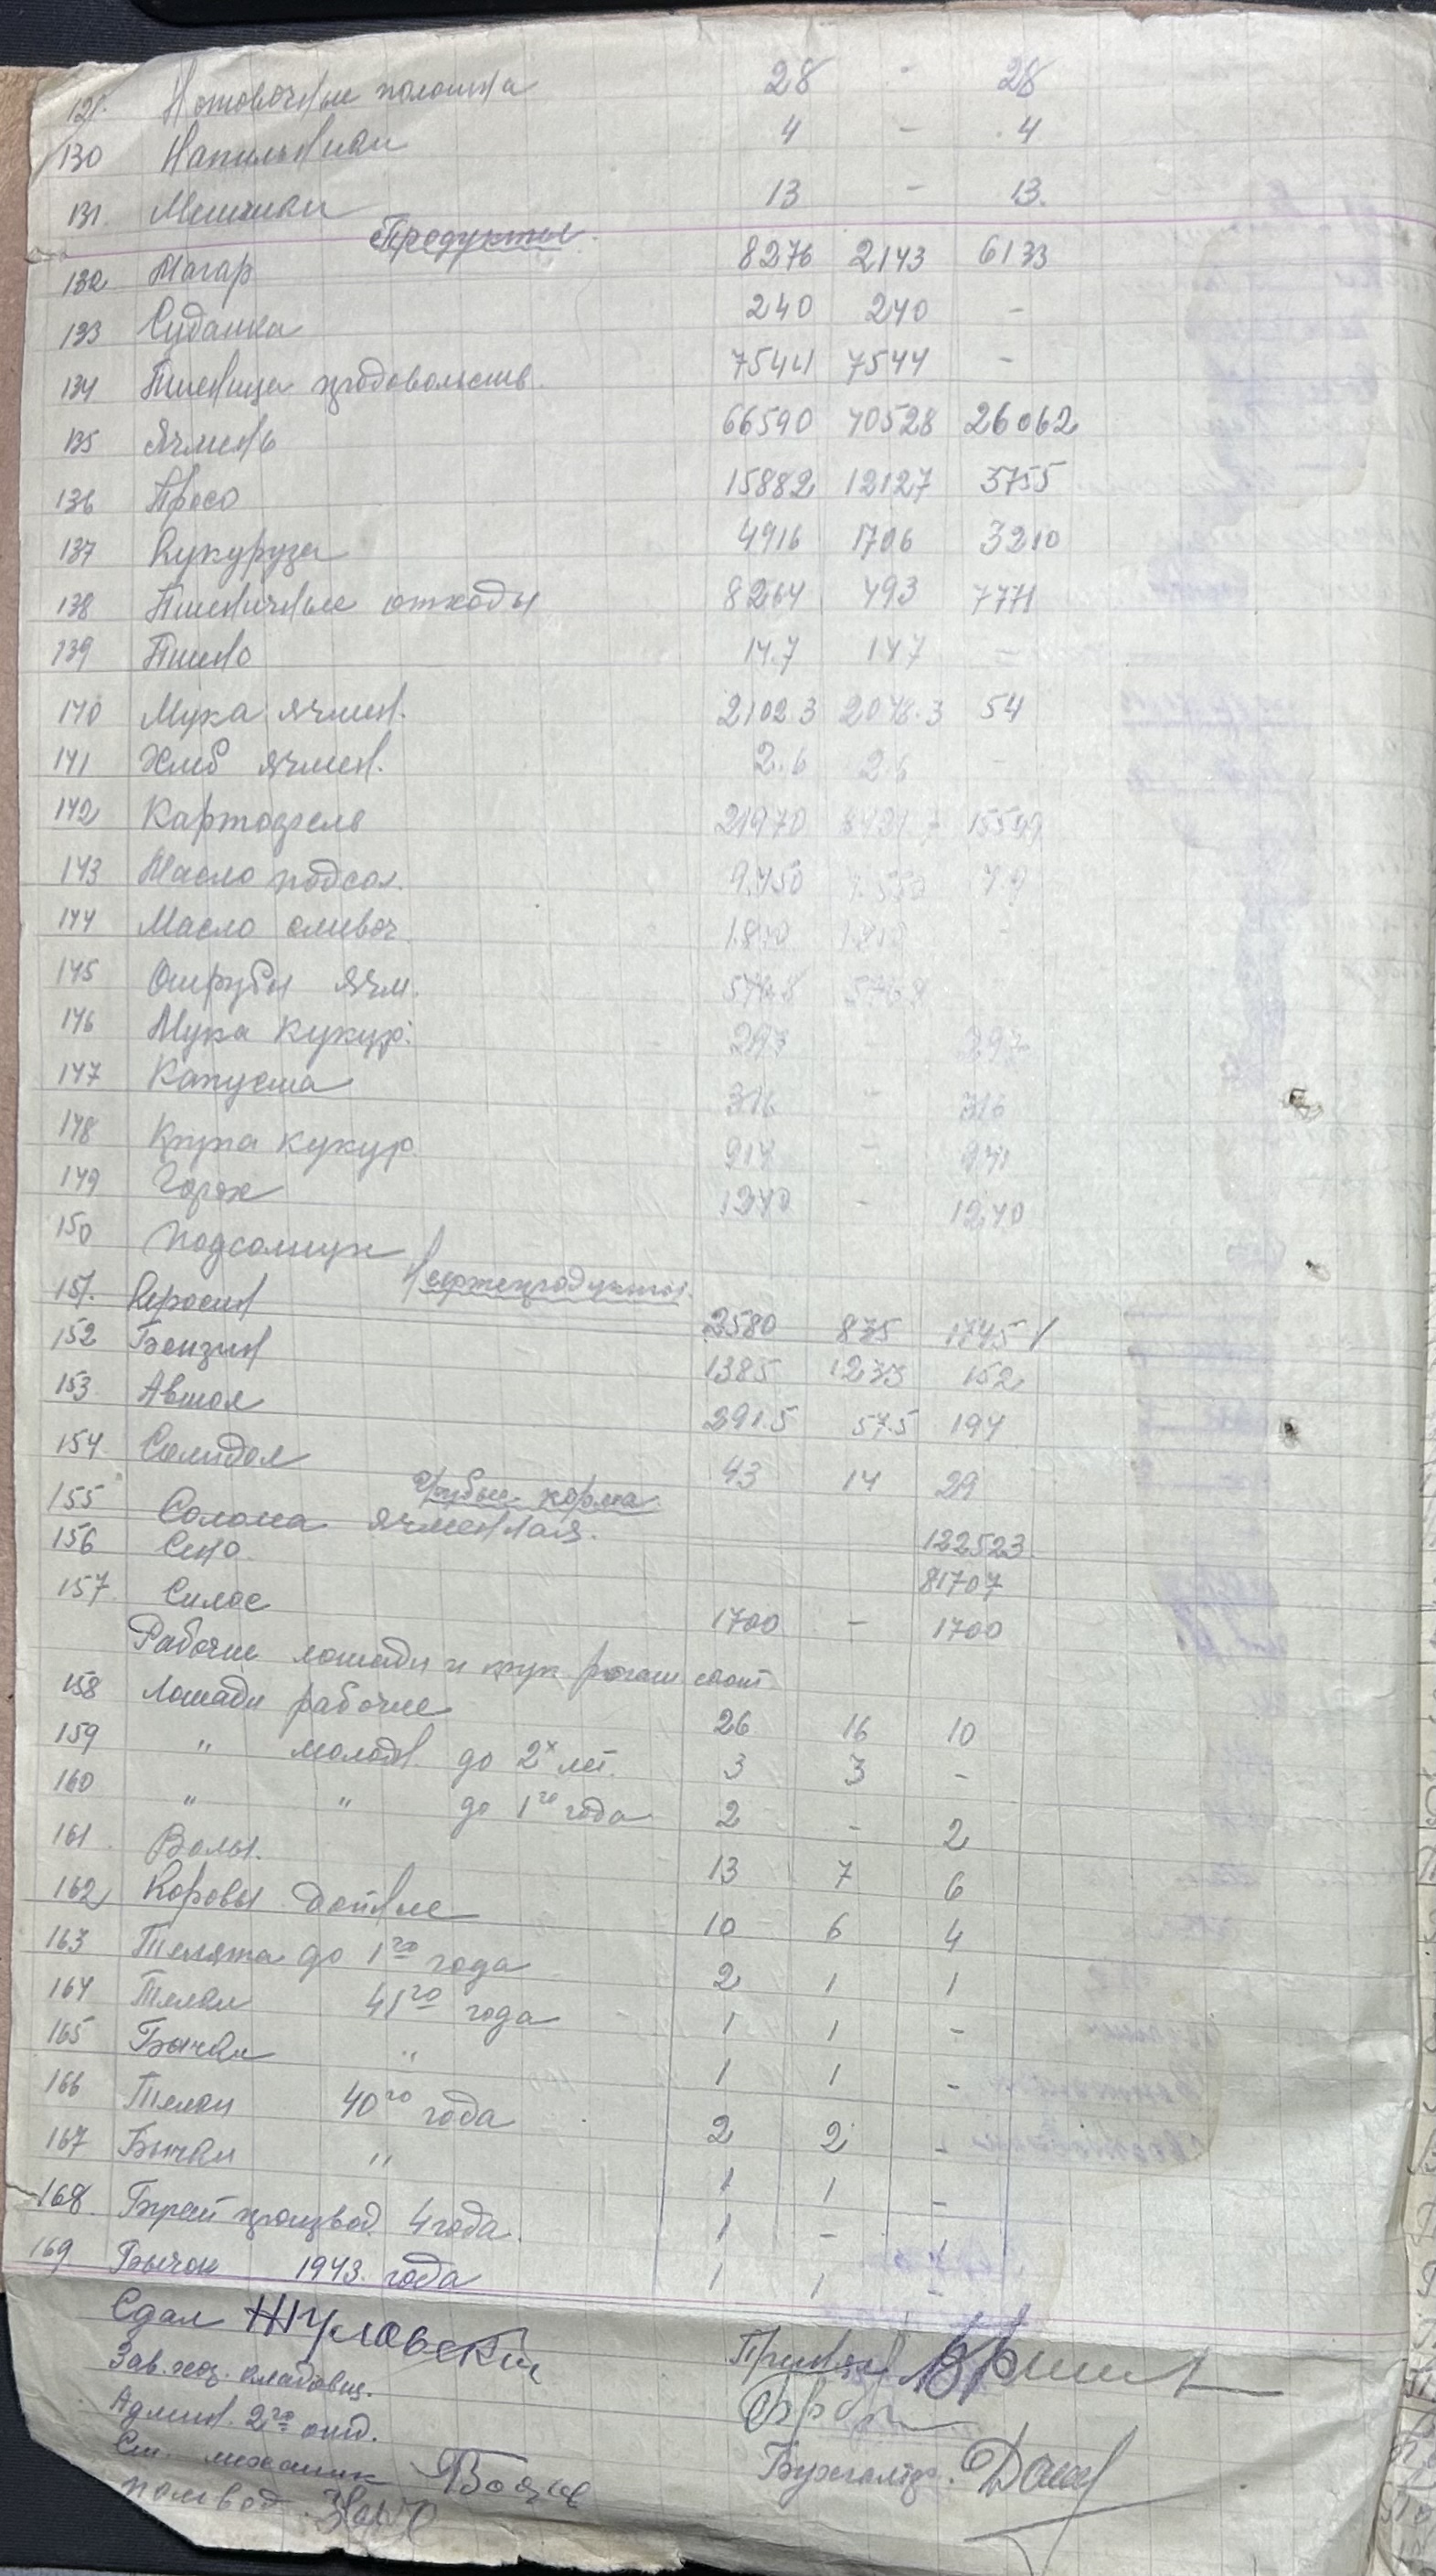 129. Ножовочные полотна 28 - 28
130 Напильники 4 - 4
131. Мешчики 13 - 13.
Продукты.
132 Могар 8276 2143 6133
133 Суданка 240 240 -
134 Пшеница продовольств. 7544 7544 -
135 Ячмень 66590 40528 26062
136 Просо 15882 12127 3755
137 Кукуруза 4916 1706 3210
138 Пшеничные отходы 8264 493 7771
139 Пшено 14.7 147 -
140 Мука ячмен. 2102.3 2048.3 54
141 Хлеб ячмен. 2.6 2.6 -
142 Картофель 21970
143 Масло подсол. 9.450
144 Масло сливоч.
145 Отруби ячм.
146 Мука кукур. 297 - 297
147 Капуста 316 - 316
148 Крупа кукур. -
149 Горох 1240 - 1240
150 Подсолнух
Нефтепродукты.
151. Керосин 2580 835 1745
152 Бензин 1385 1233 152
153 Автол 291.5 57.5 194
154 Солидол 43 14 29
Грубые корма
155 Солома ячменная. 122523
156 Сено. 81707
157. Силос 1700 - 1700
Рабочие лошади и круп рогат скот
158 Лошади рабочие 26 16 10
159 " молодн. до 2х лет. 3 3 -
160 " " до 1го года 2 - 2
161. Волы. 13 7 6
162 Коровы дойные 10 6 4
163 Телята до 1го года 2 1 1
164 Телки 41го года 1 1 -
165 Бычки " 1 1 -
166 Телки 40го года 2 2 -
167 Бычки " 1 1 -
168. Бугай производ. 4 года. 1 - 1
169 Бычок 1943. года 1 1 -
Сдал Жуловский Принял
Зав. хоз. кладовщ.
Админ. 2го отд.
Ст. механик Бухгалтер.
полевод